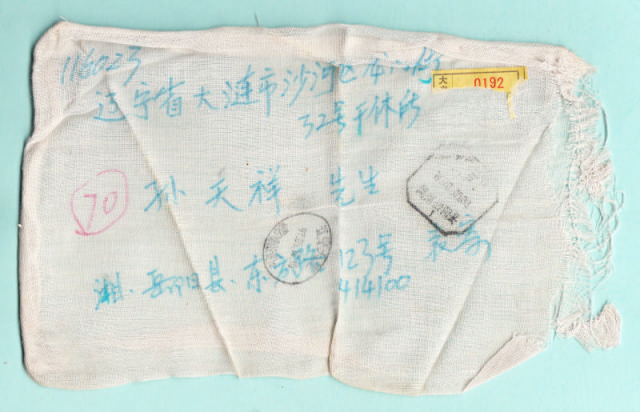 116023
大 0192
辽宁省大涟市沙河区
32号干休所
70 孙天祥 先生
湘.岳阳县.东方路123号
414100